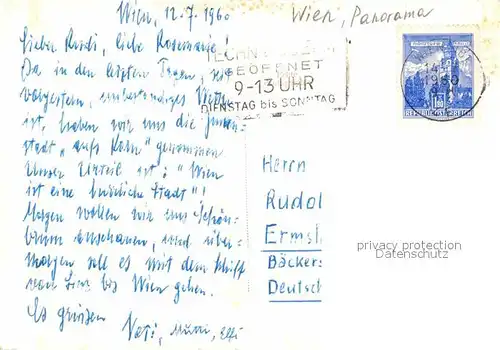 Wien, 12.7.1960
Wien, Panorama
Lieber Rudi, liebe Rosemarie!
Da in den letzten Tagen, bis
vorgestern, Wetter
ist, haben wir uns die Innen-
stadt "aufs Korn" genommen
Unser Urteil ist: "Wien
ist eine herrliche Stadt"!
Morgen wollen wir uns Schön-
brunn anschauen, und über-
morgen soll es mit dem Schiff
von Linz bis Wien gehen.
Es grüssen
Vati, Mutti, Elfi
TECHN
GEÖFFNET
9-13 UHR
DIENSTAG bis SONNTAG
1960
REPUBLIK ÖSTERREICH
Herrn
Rudol
Ermsl
Bäcker
Deutsch
privacy protection
Datenschutz